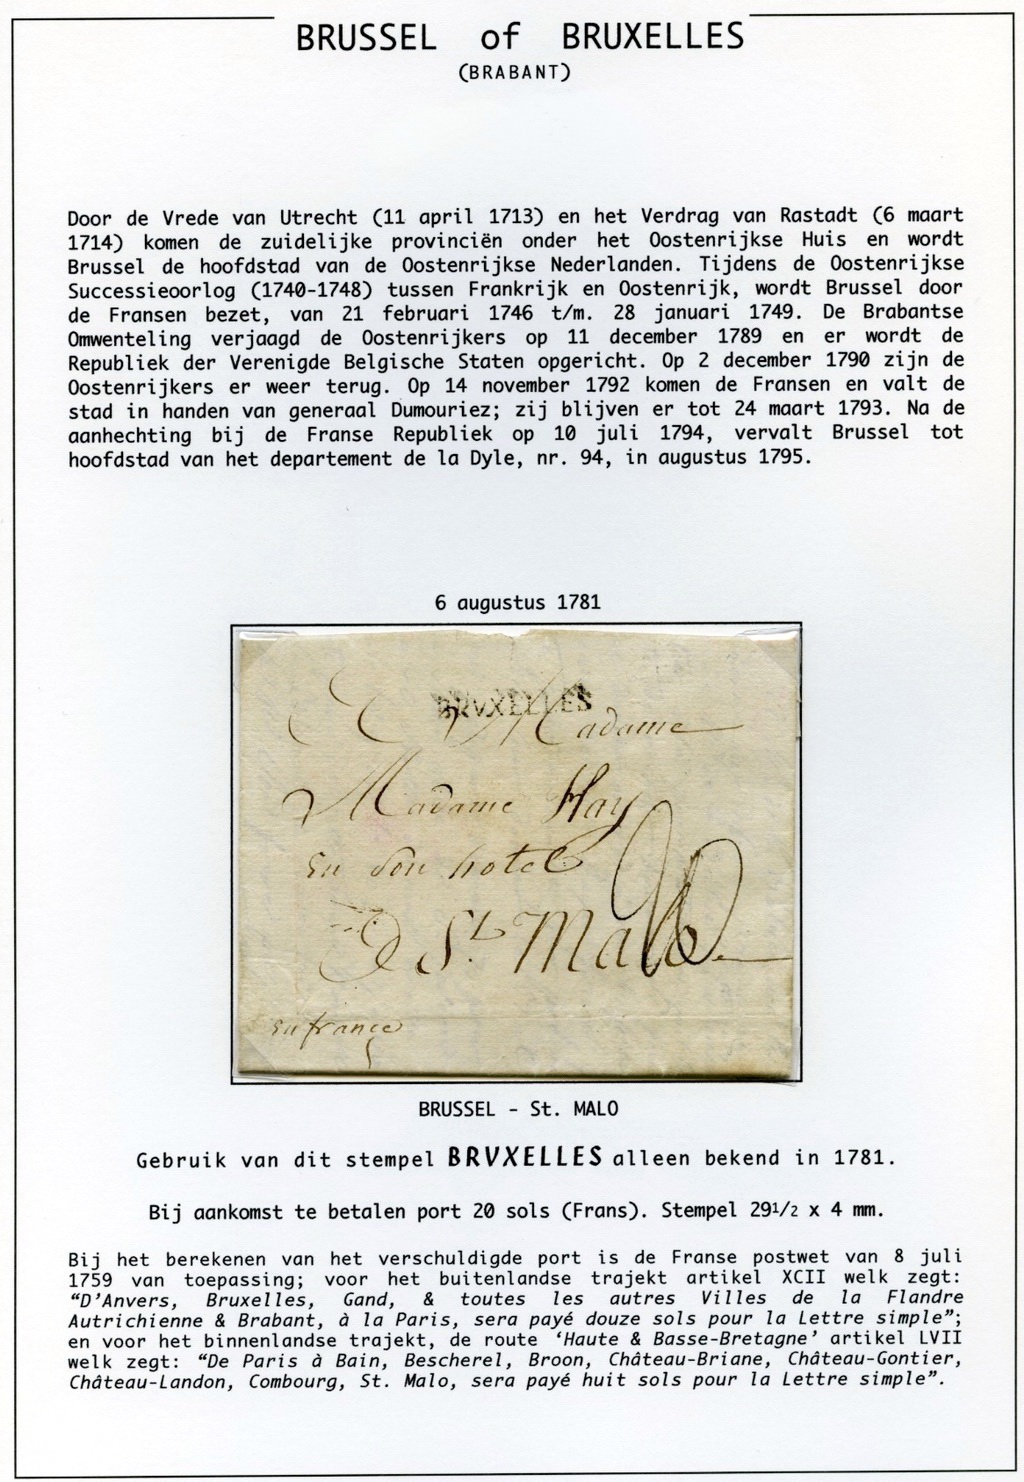 BRUSSEL of BRUXELLES
(BRABANT)
Door de Vrede van Utrecht (11 april 1713) en het Verdrag van Rastadt (6 maart
1714) komen de zuidelijke provinciën onder het Oostenrijkse Huis en wordt
Brussel de hoofdstad van de Oostenrijkse Nederlanden. Tijdens de Oostenrijkse
Successieoorlog (1740-1748) tussen Frankrijk en Oostenrijk, wordt Brussel door
de Fransen bezet, van 21 februari 1746 t/m. 28 januari 1749. De Brabantse
Omwenteling verjaagd de Oostenrijkers op 11 december 1789 en er wordt de
Republiek der Verenigde Belgische Staten opgericht. Op 2 december 1790 zijn de
Oostenrijkers er weer terug. Op 14 november 1792 komen de Fransen en valt de
stad in handen van generaal Dumouriez; zij blijven er tot 24 maart 1793. Na de
aanhechting bij de Franse Republiek op 10 juli 1794, vervalt Brussel tot
hoofdstad van het departement de la Dyle, nr. 94, in augustus 1795.
6 augustus 1781
BRVXELLES
A Madame
Madame Hay
En son hotel
A St. Malo
En france
BRUSSEL - St. MALO
Gebruik van dit stempel BRVXELLES alleen bekend in 1781.
Bij aankomst te betalen port 20 sols (Frans). Stempel 29 1/2 x 4 mm.
Bij het berekenen van het verschuldigde port is de Franse postwet van 8 juli
1759 van toepassing; voor het buitenlandse trajekt artikel XCII welk zegt:
“D’Anvers, Bruxelles, Gand, & toutes les autres Villes de la Flandre
Autrichienne & Brabant, à la Paris, sera payé douze sols pour la Lettre simple”;
en voor het binnenlandse trajekt, de route ‘Haute & Basse-Bretagne’ artikel LVII
welk zegt: “De Paris à Bain, Bescherel, Broon, Château-Briane, Château-Gontier,
Château-Landon, Combourg, St. Malo, sera payé huit sols pour la Lettre simple”.